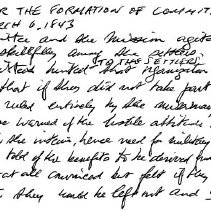 R THE FORMATION OF COMMIT
RCH 6, 1843
ttee and the Mission agita
chiefly among the settlers
TO THE SETTLERS
hinted that organization
that if they did not take part
ruled entirely by the
be warned of the hostile attitude
the interior, hence need for military
told of the benefits to be derived from
not all convinced but felt if they
they would be left out and